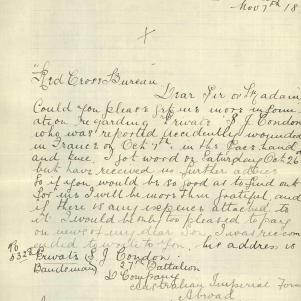 Nov 7th 18
X
"Red Cross Bureau"
Dear Sir or Madam
Could you please give me more inform
ation regarding Private S J Condon
who was reported accidently wounded
in France on Oct 7th. in the face hand
and knee. I got word on Saturday Oct 26
but have received no further advice
So if you would be so good as to find out
for me I will be more than grateful, and
if there is any expense attached to
it I would be only too pleased to pay
on news of my dear son, I was recom
ended to write to you. his address is
No 5328 Private S. J. Condon
Bandsman 27th Battalion
D Company
Australian Imperial Force
Abroad